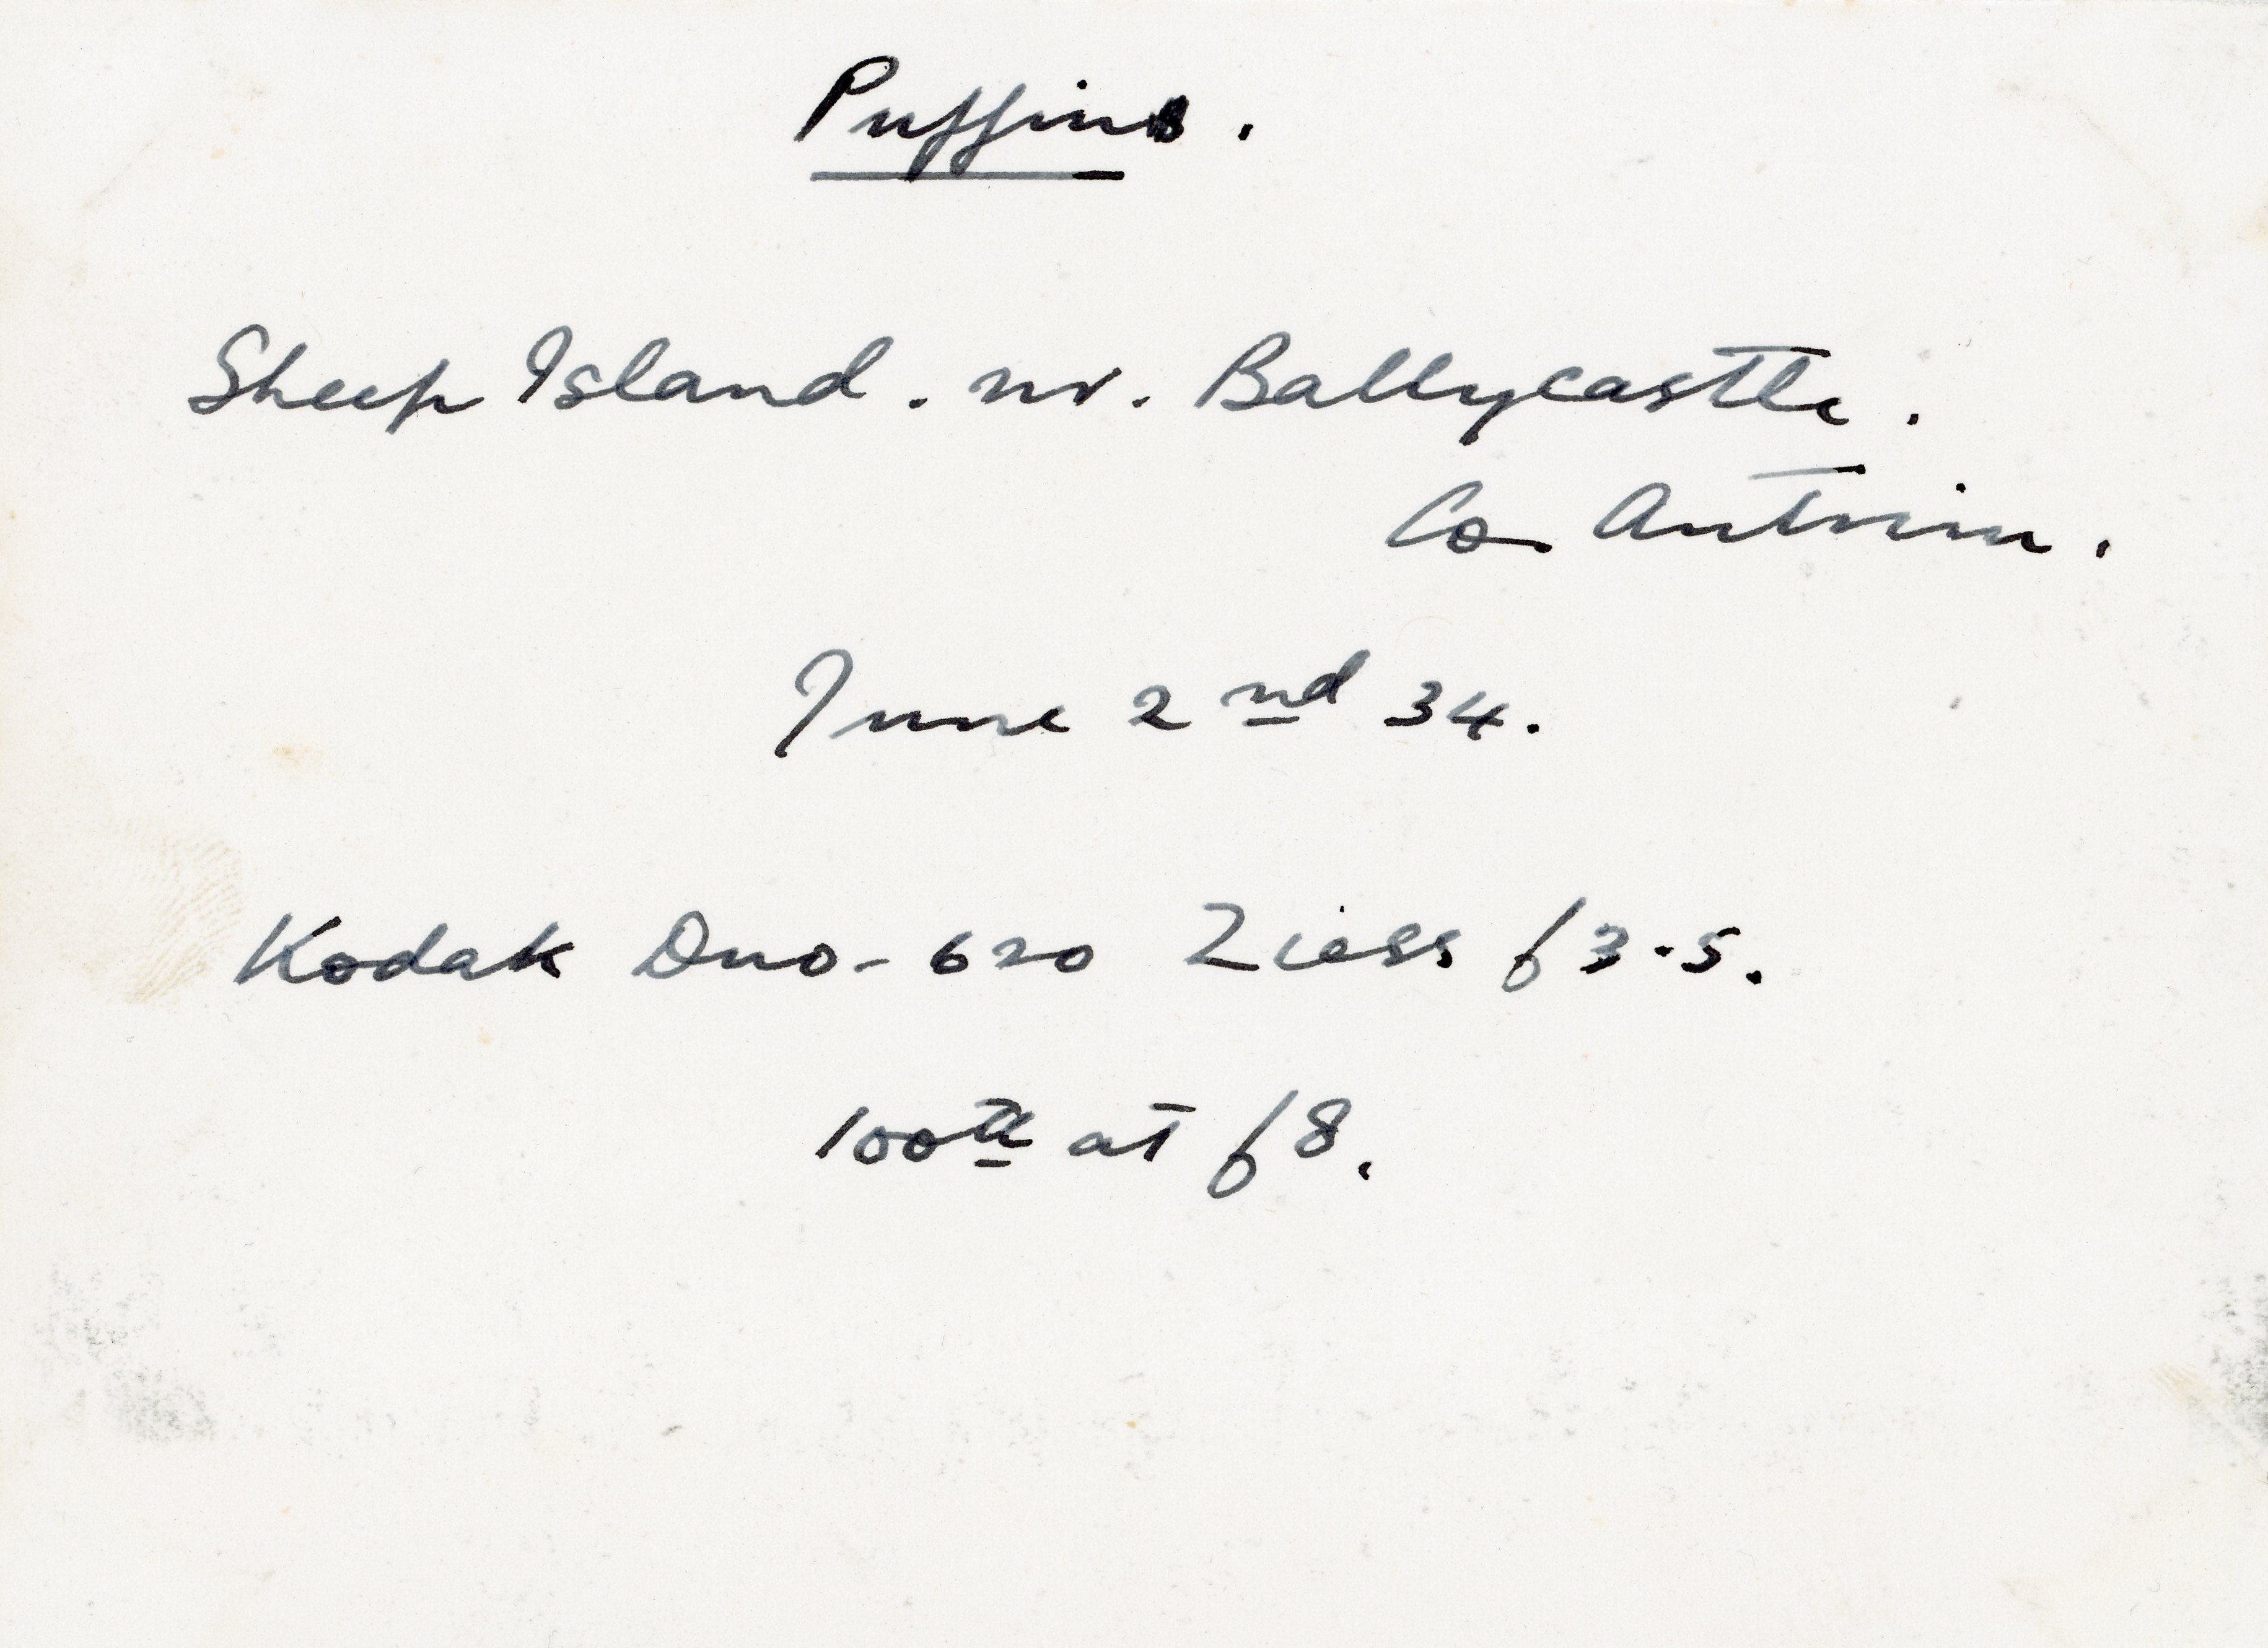 Puffins.
Sheep Island. nr. Ballycastle.
Co Antrim.
June 2nd 34.
Kodak Duo-620 Ziess f3.5.
100th at f8.